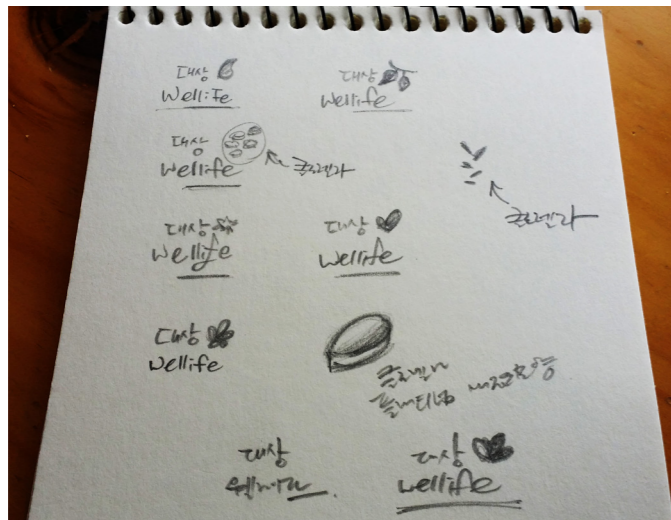 대상
Wellife
대상
Wellife
대상
Wellife
클로렐라
클로렐라
대상
Wellife
대상
Wellife
대상
Wellife
클로렐라
플래티넘
대상
웰라이프
대상
Wellife